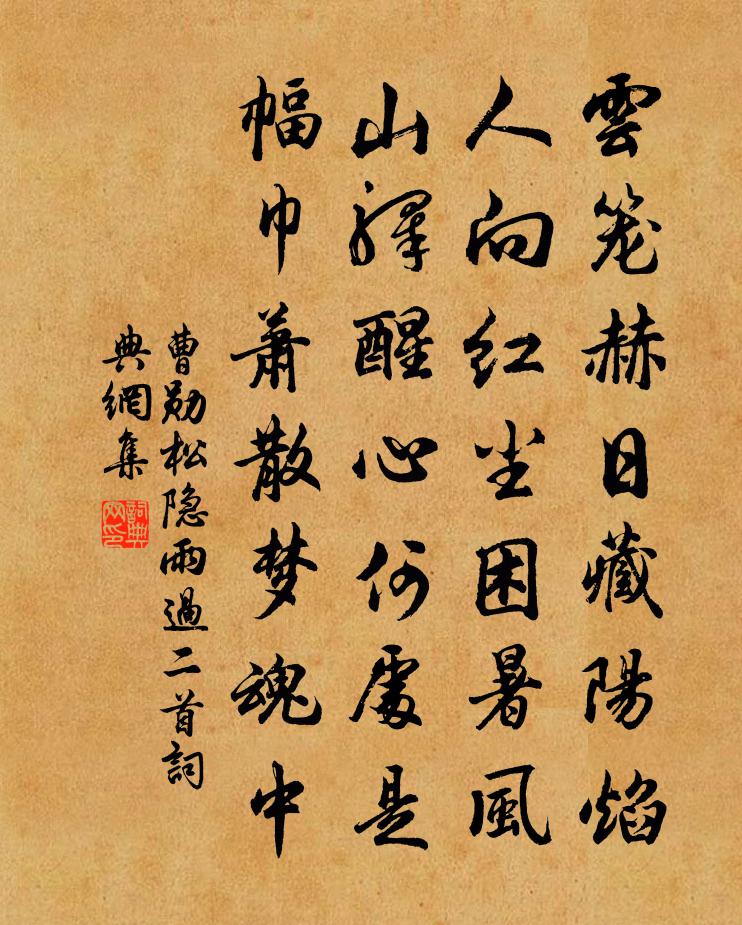 雲笼赫日藏陽焰
人向红尘困暑風
山驿醒心何處是
幅巾萧散梦魂中
曹勋松隐雨過二首詞
典網集
詞典
网印